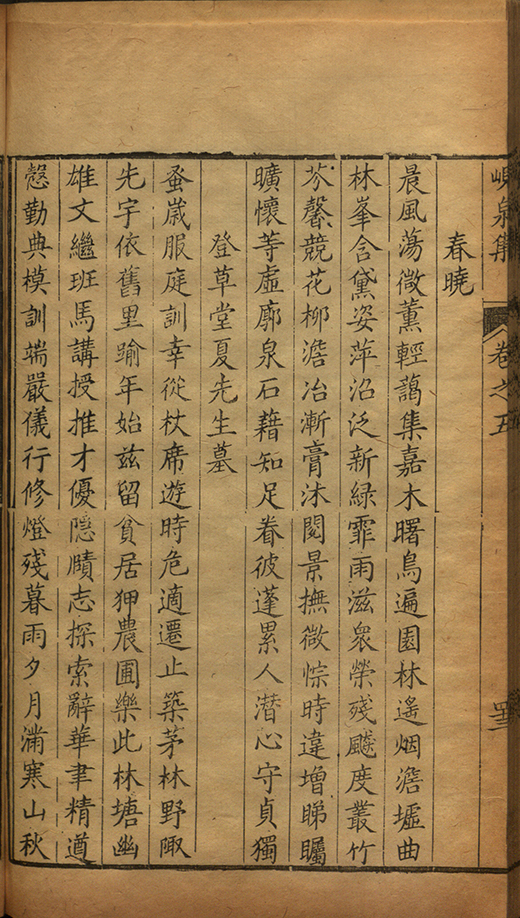 峴泉集 卷之五 四三
春曉
晨風蕩微薰輕藹集嘉木曙鳥遍園林遙烟澹墟曲
林峯含黛姿萍沼泛新緑霏雨滋衆榮殘颸度叢竹
芬馨競花柳澹冶漸膏沐閱景撫微悰時違增睇矚
曠懷等虛廓泉石藉知足眷彼蓬累人潜心守貞獨
登草堂夏先生墓
蚤歲服庭訓幸從杖席遊時危適遷止築茅林野陬
先宇依舊里踰年始兹留貧居狎農圃樂此林塘幽
雄文繼班馬講授推才優隱賾志探索辭華聿精遒
慇勤典模訓端嚴儀行修燈殘暮雨夕月滿寒山秋